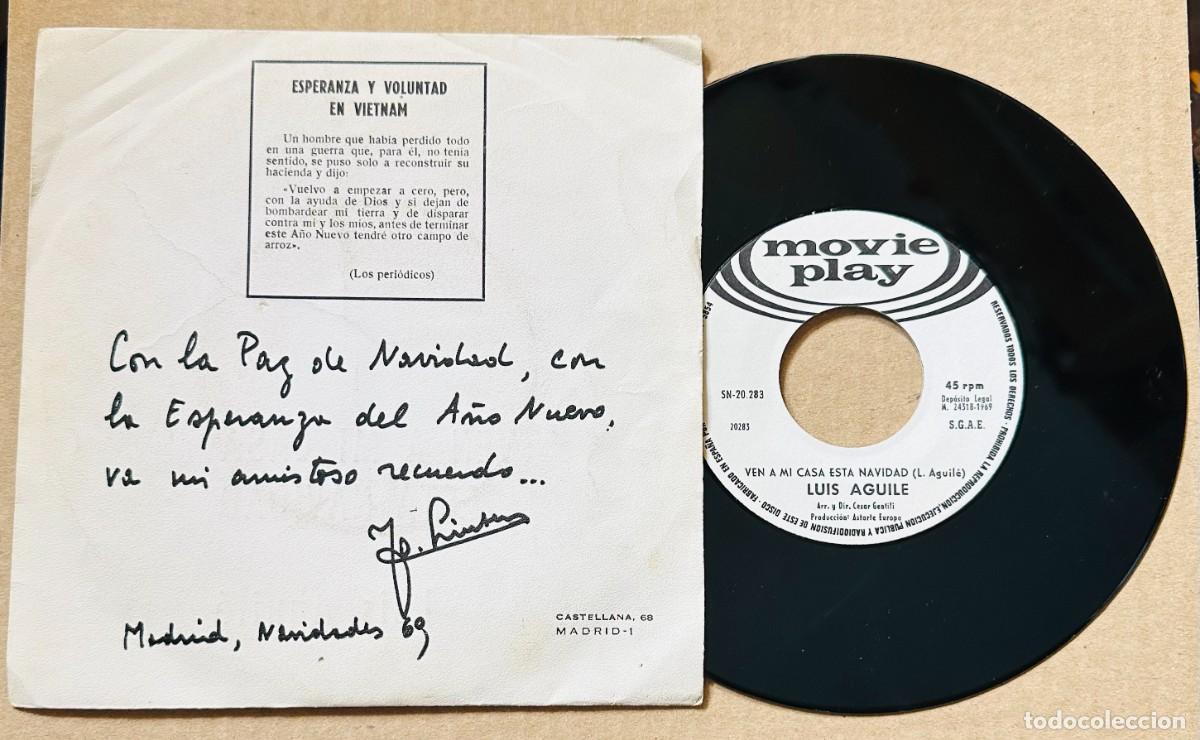 ESPERANZA Y VOLUNTAD
EN VIETNAM
Un hombre que había perdido todo
en una guerra que, para él, no tenía
sentido, se puso solo a reconstruir su
hacienda y dijo:
«Vuelvo a empezar a cero, pero,
con la ayuda de Dios y si dejan de
bombardear mi tierra y de disparar
contra mí y los míos, antes de terminar
este Año Nuevo tendré otro campo de
arroz».
(Los periódicos)
Con la Paz de Navidad, con
la Esperanza del Año Nuevo,
va mi amistoso recuerdo...
Madrid, Navidades 69
CASTELLANA, 68
MADRID-1
movie
play
SN-20.283
20283
45 rpm
Depósito Legal
M. 24518-1969
S.G.A.E.
VEN A MI CASA ESTA NAVIDAD (L. Aguilé)
LUIS AGUILE
Arr. y Dir. Cesar Gentili
Producción: Astorte Europa
RESERVADOS TODOS LOS DERECHOS - PROHIBIDA LA REPRODUCCION, EJECUCION PUBLICA Y RADIODIFUSION DE ESTE DISCO - FABRICADO EN ESPAÑA POR
todocoleccion